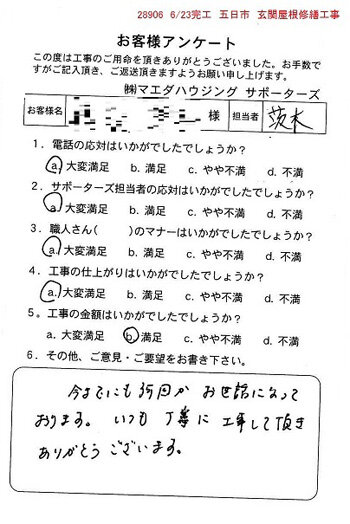 28906 6/23完工 五日市 玄関屋根修繕工事
お客様アンケート
この度は工事のご用命を頂きありがとうございました。お手数で
すがご記入頂き、ご返送頂きますようお願い申し上げます。
㈱マエダハウジング サポーターズ
お客様名 様 担当者 茨木
1．電話の応対はいかがでしたでしょうか？
a. 大変満足 b. 満足 c. やや不満 d. 不満
2．サポーターズ担当者の応対はいかがでしたでしょうか？
a. 大変満足 b. 満足 c. やや不満 d. 不満
3．職人さん( )のマナーはいかがでしたでしょうか？
a. 大変満足 b. 満足 c. やや不満 d. 不満
4．工事の仕上がりはいかがでしたでしょうか？
a. 大変満足 b. 満足 c. やや不満 d. 不満
5．工事の金額はいかがでしたでしょうか？
a. 大変満足 b. 満足 c. やや不満 d. 不満
6．その他、ご意見・ご要望をお書き下さい。
今までにも何回か お世話になって
おります。いつも 丁寧に 工事して頂き
ありがとう ございます。